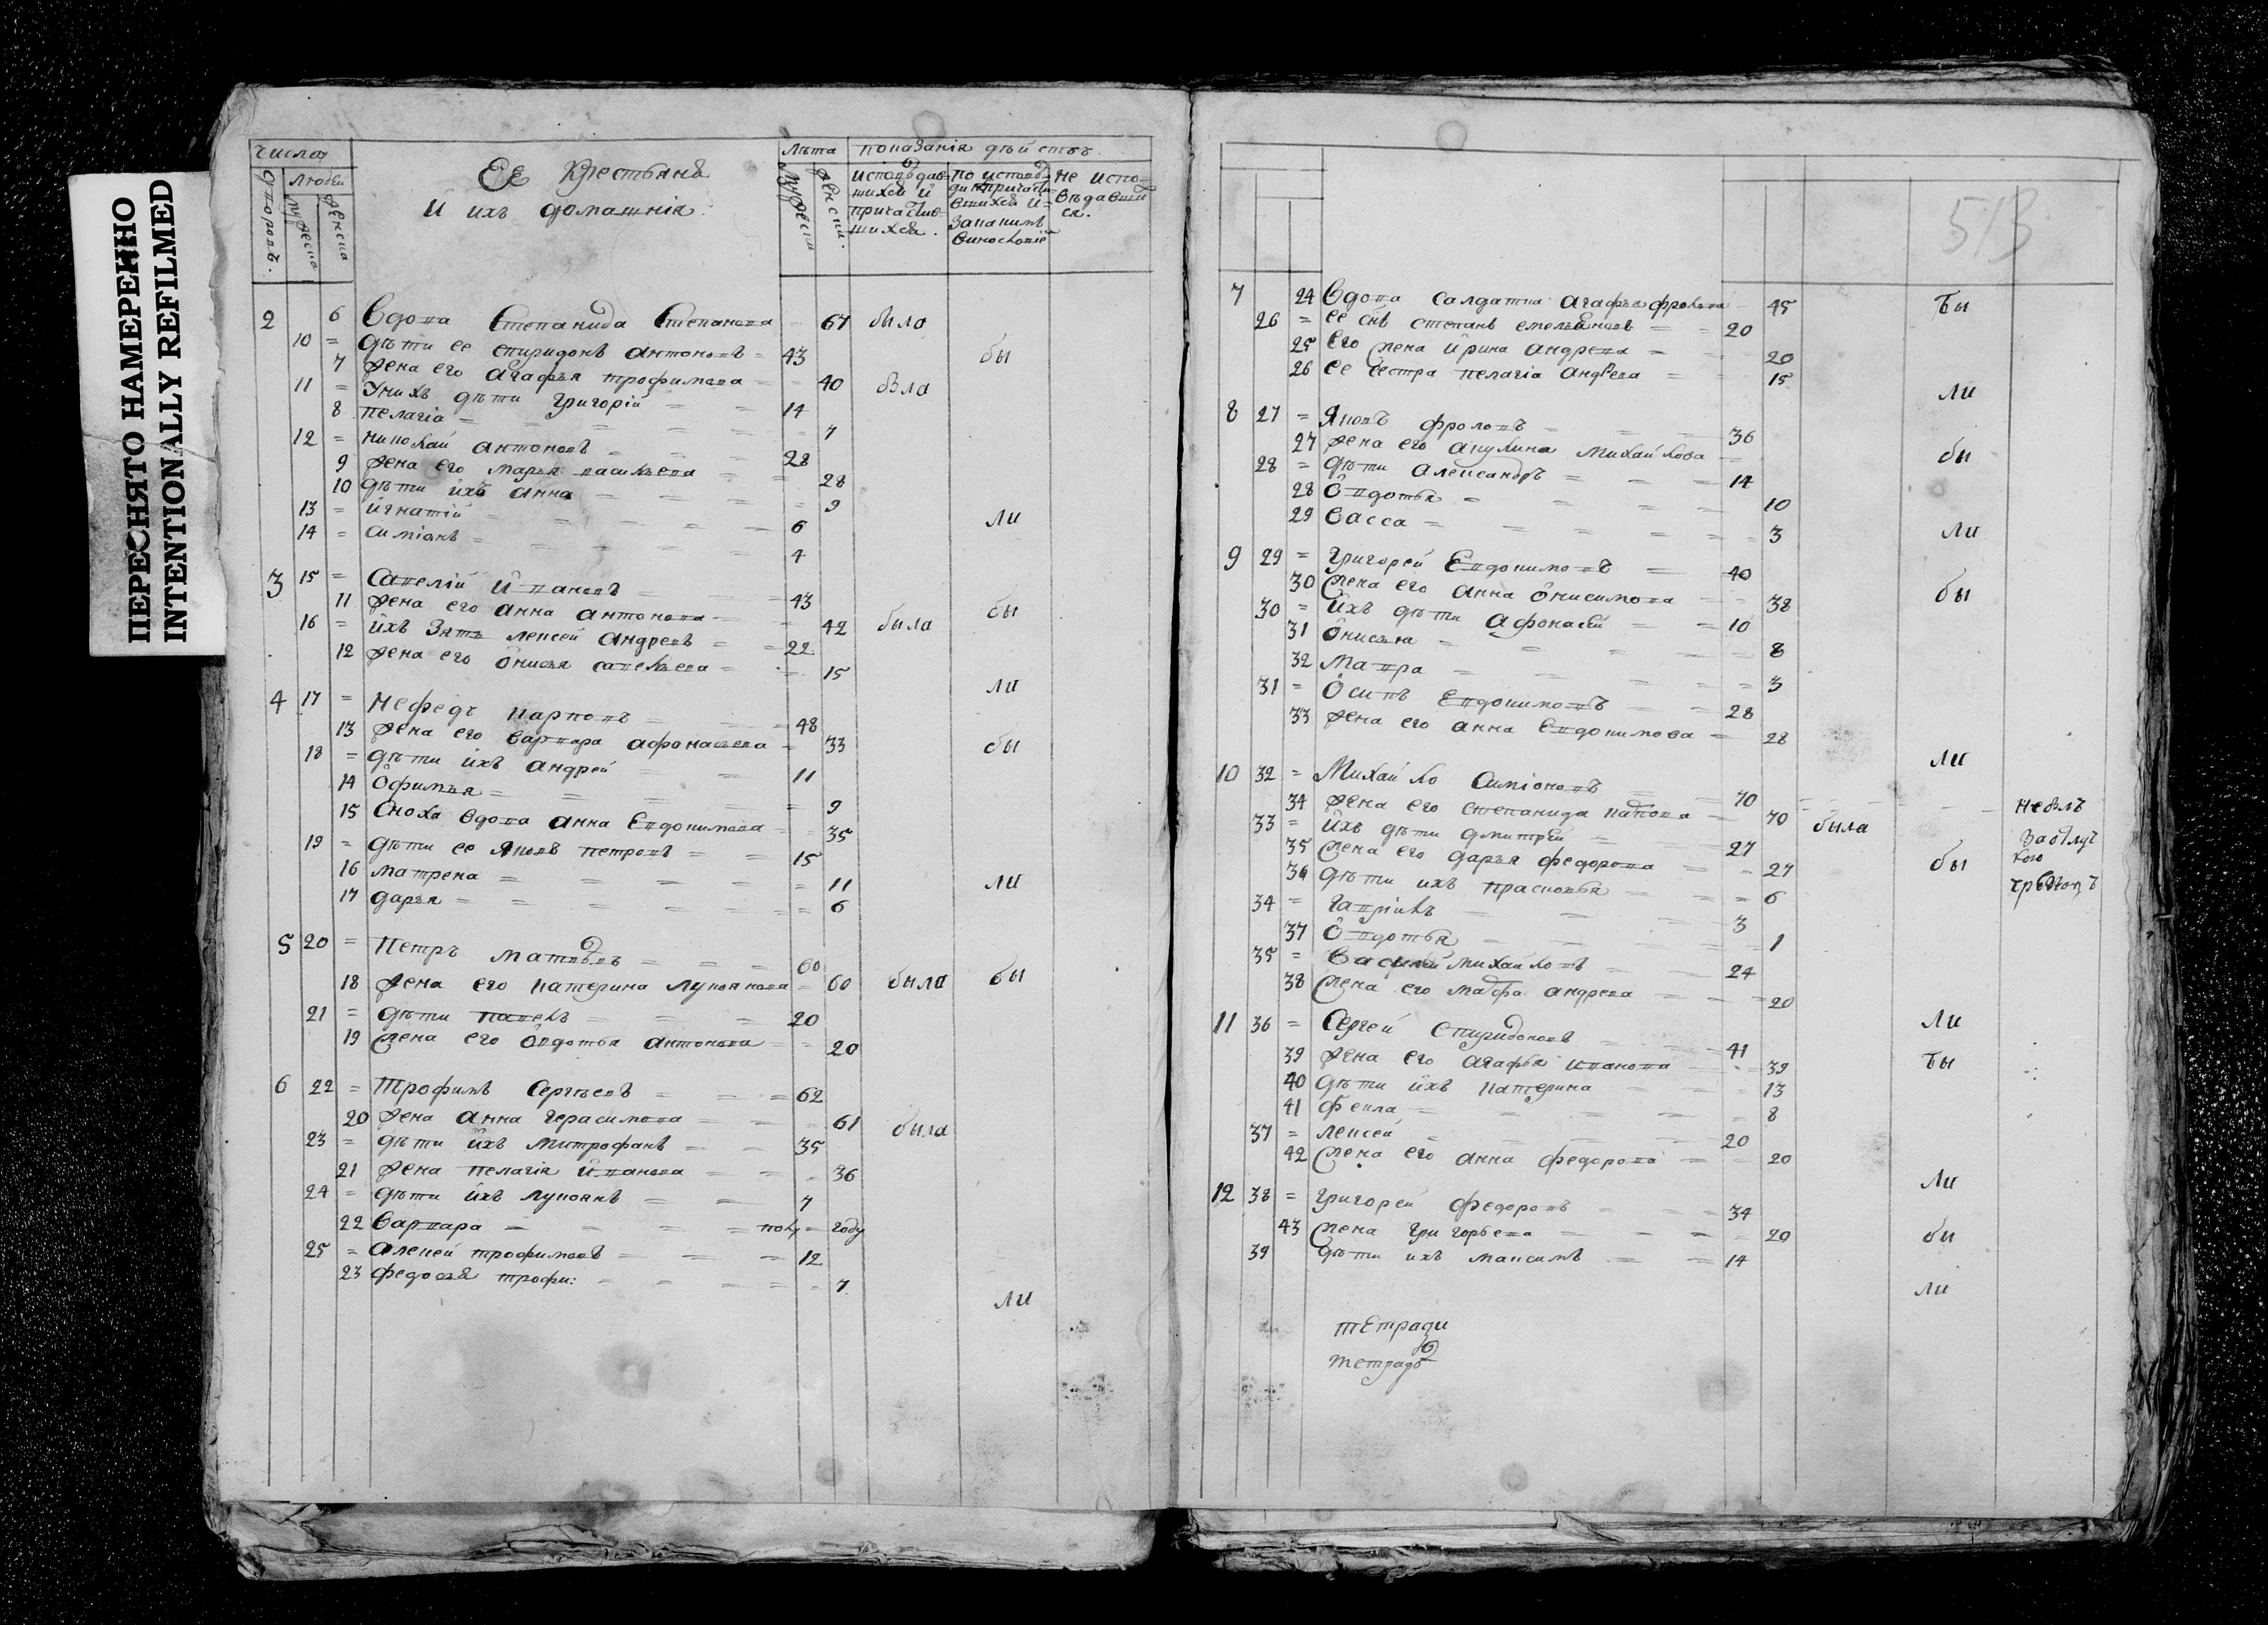 ПЕРЕСНЯТО НАМЕРЕННО
INTENTIONALLY REFILMED
числа
Люди
Ее Крестьянѣ
и ихъ домашнія
Лѣта
показанія дѣйствъ
исповѣдавшихся и причастившихся
не исповѣдавшися
2 6 Вдова Степанида Степанова 67 была
10 = дѣти ее спиридонъ антоновъ 43 бы
7 жена его агафья трофимова 40 была
11 = У нихъ дѣти григорій 14
8 пелагіа 7
12 = николай антоновъ 28
9 жена его марья васильева 28
10 дѣти ихъ анна 9
13 = игнатій 6 ли
14 = симіонъ 4
3 15 = Савелій Ивановъ 43
11 жена его анна антонова 42 была бы
16 = ихъ зять лексей андревъ 22
12 жена его онисья савельева 15
ли
4 17 = Нефедъ карповъ 48
13 жена его варвара афонасьева 33 бы
18 = дѣти ихъ андрей 11
14 Офимья 9
15 Сноха вдова анна Евдокимова 35
19 = дѣти ее яковъ петровъ 15
16 матрена 11 ли
17 дарья 6
5 20 = Петръ матвѣевъ 60
18 жена его катерина лукоянова 60 была бы
21 = дѣти павелъ 20
19 жена его овдотья антонова 20
6 22 = Трофимъ Сергѣевъ 62
20 жена анна герасимова 61 была
23 = дѣти ихъ митрофанъ 35
21 жена пелагія иванова 36
24 = дѣти ихъ лукоянъ 7
22 Варвара полу году
25 = алексей трофимовъ 12
23 федосья трофи: 7
ли
513
7 24 Вдова салдатка агафья фролова 45 бы
26 = ее снъ степанъ емельяновъ 20
25 Его жена ирина андрева 20
26 ее сестра пелагіа андрева 15
ли
8 27 = Яковъ фроловъ 36
27 жена его акулина михайлова бы
28 = дѣти александръ 14
28 Овдотья 10
29 Васса 3 ли
9 29 = Григорей Евдокимовъ 40
30 жена его анна онисимова 38 бы
30 = ихъ дѣти афонасей 10
31 онисья 8
32 Мавра 3
31 = Осипъ Евдокимовъ 28
33 жена его анна Евдокимова 28
ли
10 32 = Михайло Симіоновъ 70 небылъ
34 жена его степанида 70 была
33 = ихъ дѣти дмитрей 27
35 жена его дарья федорова 27 бы
36 дѣти ихъ прасковья 6
34 = гаврилъ 3
37 Овдотья 1
35 = Василей михайловъ 24
38 жена его марфа андрева 20
ли
11 36 = Сергей спиридоновъ 41
39 жена его агафья иванова 39 бы
40 дѣти ихъ катерина 13
41 фекла 8
37 = лексей 20
42 жена его анна федорова 20
ли
12 38 = Григорей федоровъ 34
43 жена григорьева 20 бы
39 дѣти ихъ максимъ 14
ли
тЕтради
тетрадь